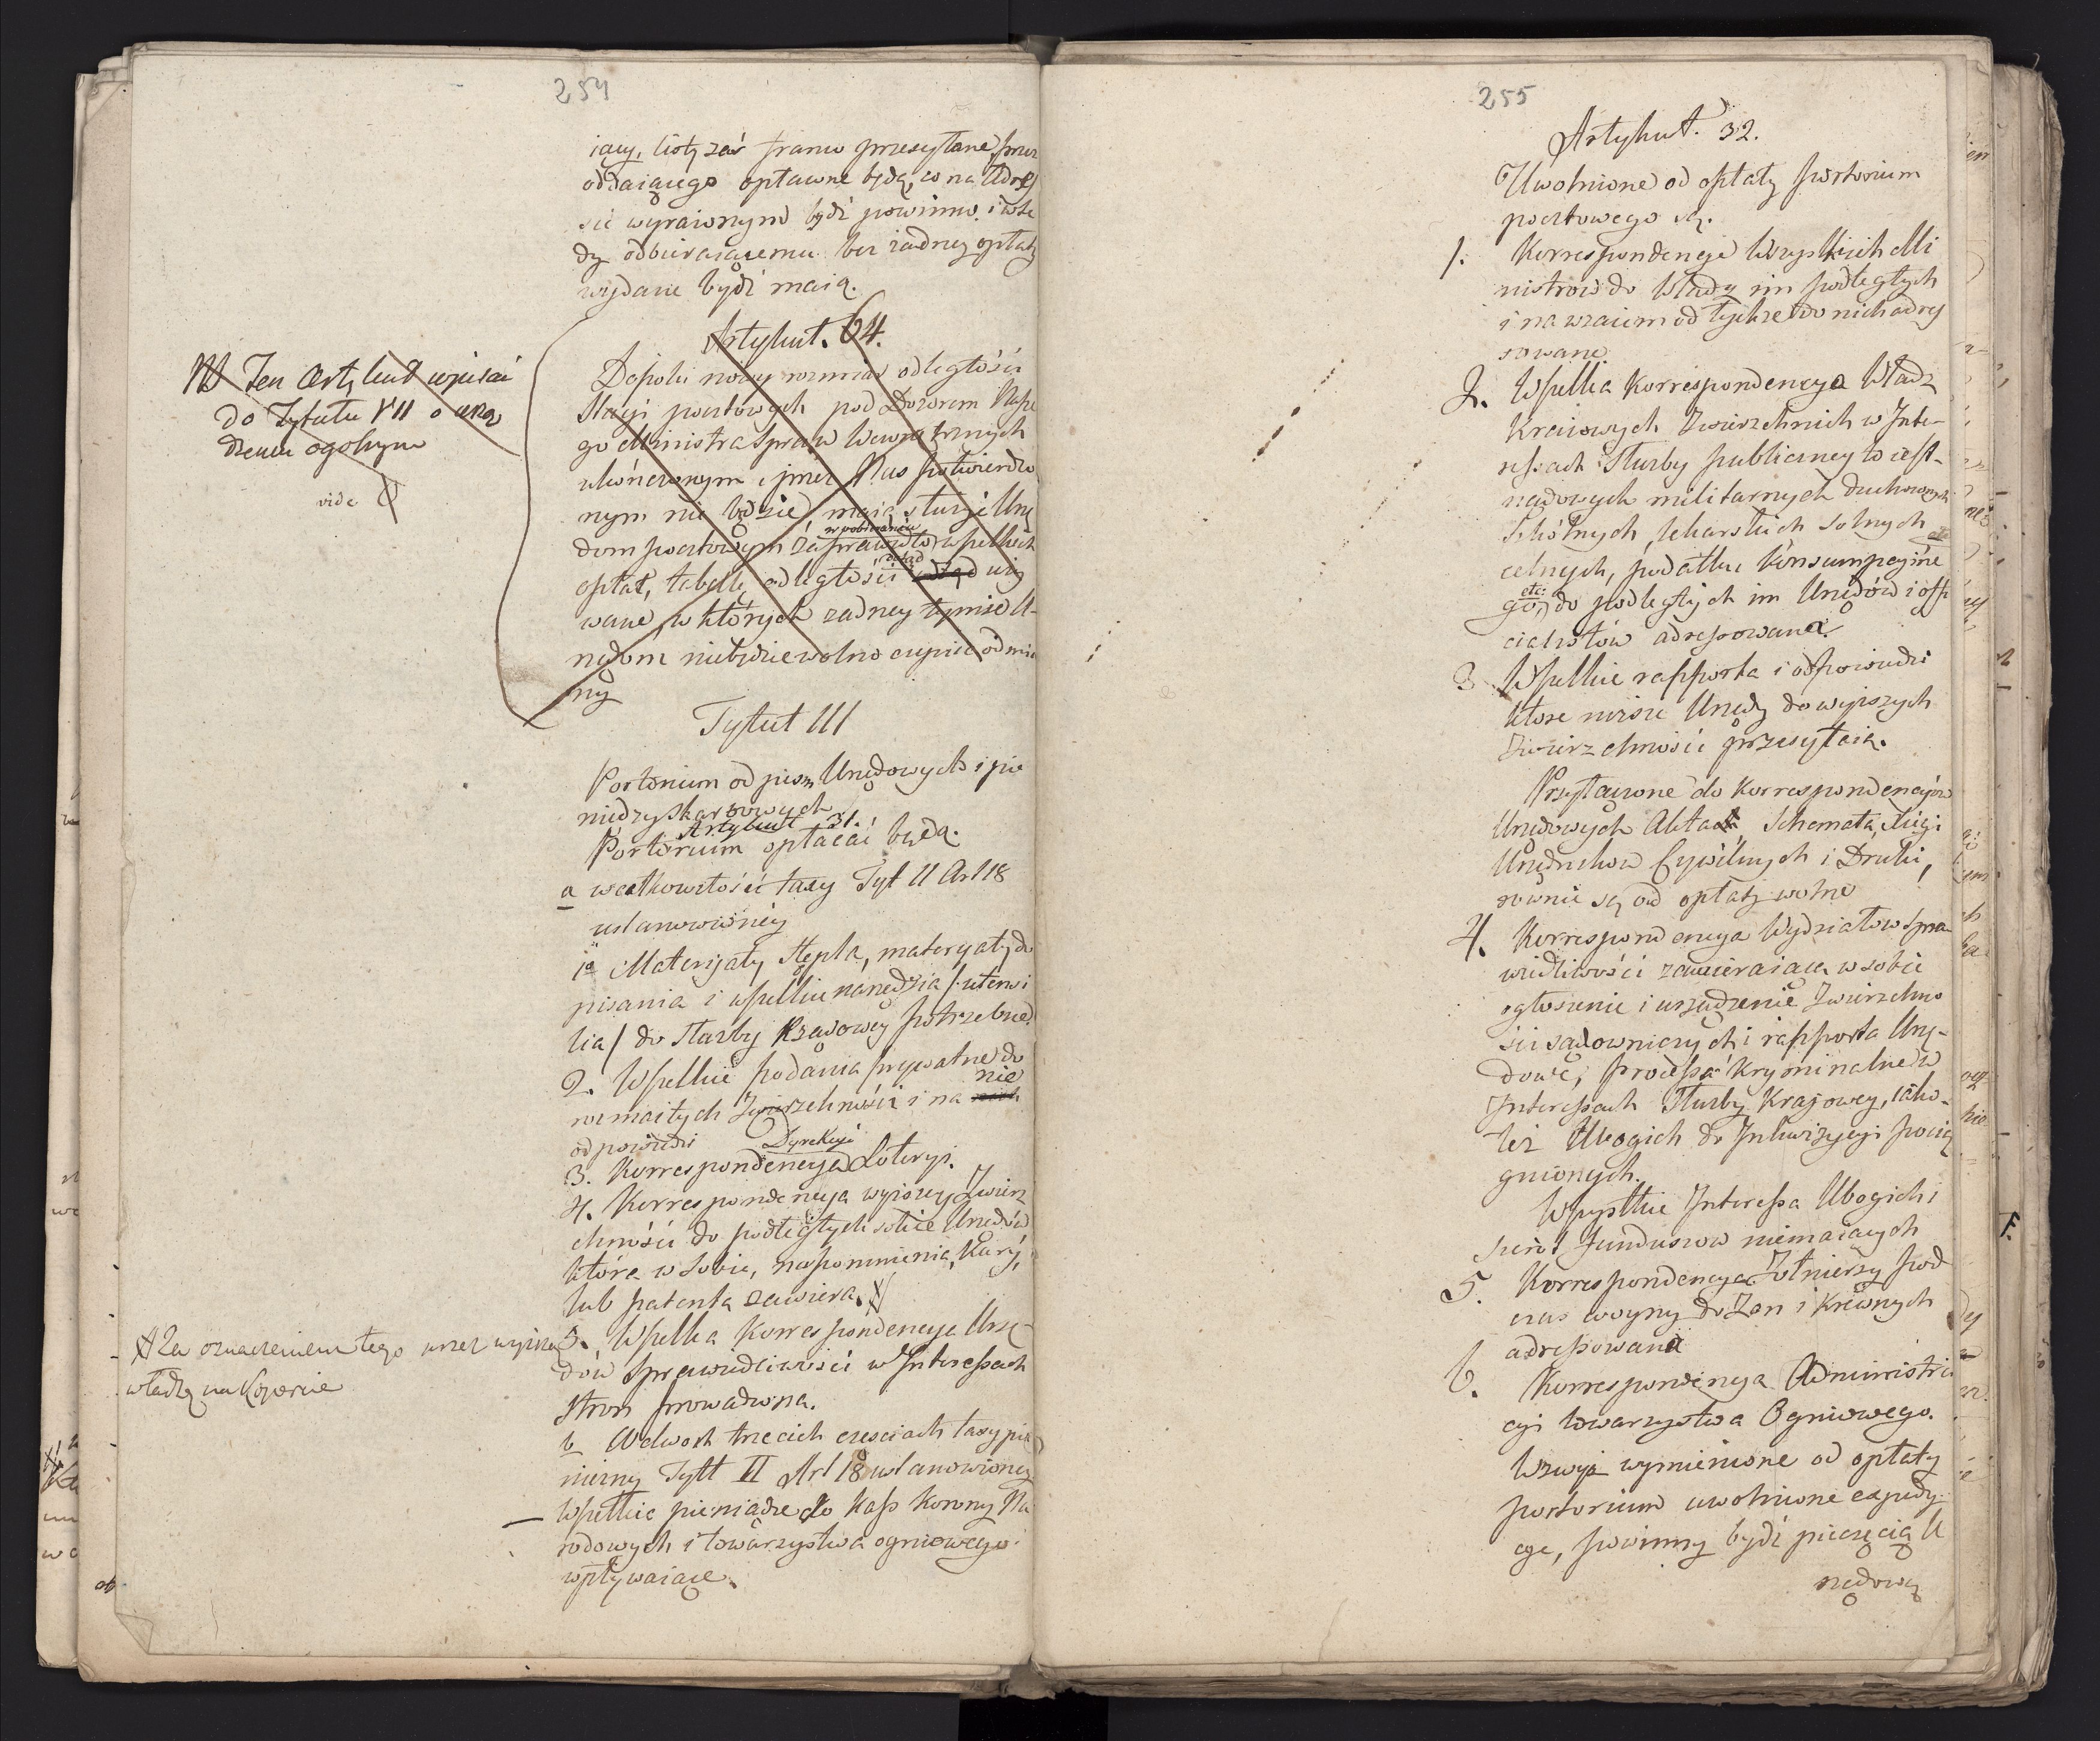 254
iący, listy zaś franco przesyłane, przez
oddaiącego opłacone będą, co na Adres
sie wyrażonym bydź powinno. i wte
dy odbieraiącemu bez żadney opłaty
wydane bydź maią.
Artykuł. 64.
Dopoki nowy rozmiar odległości
Stacyi pocztowych pod Dozorem Nasze
go Ministra Spraw Wewnętrznych
ukończonym i przez Nas potwierdzo
nym nie będzie maią służyć Urzę
dom pocztowym za prawidło w pobieraniu wszelkich
opłat, tabelle odległości dotąd uży
wane, w których żadney tymże U-
rzędom niebędzie wolno czynić odmia
ny
NB Ten Artykuł wpisać
do Tytułu VII o urzą
dzeniu ogolnym
vide
Tytuł III
Portorium od pism Urzędowych i pie
niędzy skarbowych
Artykuł 31.
Portorium opłacać będą.
a w całkowitości taxy Tyt II Art 18
ustanowioney
1º Materyały Stępla, materyały do
pisania i wszelkie narzędzia /: utensi
lia / do służby Krajowey potrzebne.
2. Wszelkie podania prywatne do
rozmaitych Zwierzchności i na nie
odpowiedzi
3. Korrespondencya Dyrekcyi Loteryi.
4. Korrespondencya wyższey Zwierz
chności do podległych sobie Urzędów
która w sobie, napomnienia, Kary,
lub patenta zawiera. X
X Za oznaczeniem tego przez wyższą
władzę na Kopercie
5. Wszelka Korrespondencya Urzę-
dów Sprawiedliwości w Interessach
Stron prowadzona.
b W dwoch trzecich częściach taxy pie
niężny Tytt II Art 18 ustanowioney
Wszelkie pieniądze do Kass Korony Na
rodowych i towarzystwa ogniowego
wpływaiące.
255
Artykuł. 32.
Uwolnione od opłaty portorium
pocztowego są.
1. Korrespondencye Wszystkich Mi
nistrów do Władz im podległych
i na wzaiem od tychże do nich adres
sowane.
2. Wszelka Korrespondencya Władz
Kraiowych Zwierzchnich w Inte-
ressach Służby publiczney to iest-
rządowych militarnych duchownych
Szkólnych, lekarskich solnych
celnych, podatku konsumpcyjne
go, etc: do podległych im Urzędów i offi
cialistów adressowana.
3 Wszelkie rapporta i odpowiedzi
które niższe Urzędy do wyższych
Zwierzchności przesyłaią.
Przyłączone do Korrespondencyów
Urzędowych Akta, Schemata, Xięgi
Urzędników Cywilnych i Druki,
rownie są od opłaty wolne
4. Korrespondencya Wydziałów Spra
wiedliwości zawieraiąca w sobie
ogłoszenie i urządzenie Zwierzchno
ści sądowniczych i rapporta Urzę-
dowe, processa Kryminalne w
Interessach Służby Krajowey, iako-
też Ubogich do Inkwizycyi pocią
gnionych.
Wszystkie Interessa Ubogich i
sierot funduszow niemaiących
5. Korrespondencya Żołnierzy pod
czas woyny do Żon i Krewnych
adressowana
6. Korrespondencya Administra
cyi towarzystwa Ogniowego.
Wzwyż wymienione od opłaty
portorium uwolnione expedy-
cye, powinny bydź pieczęcią U
rzędową